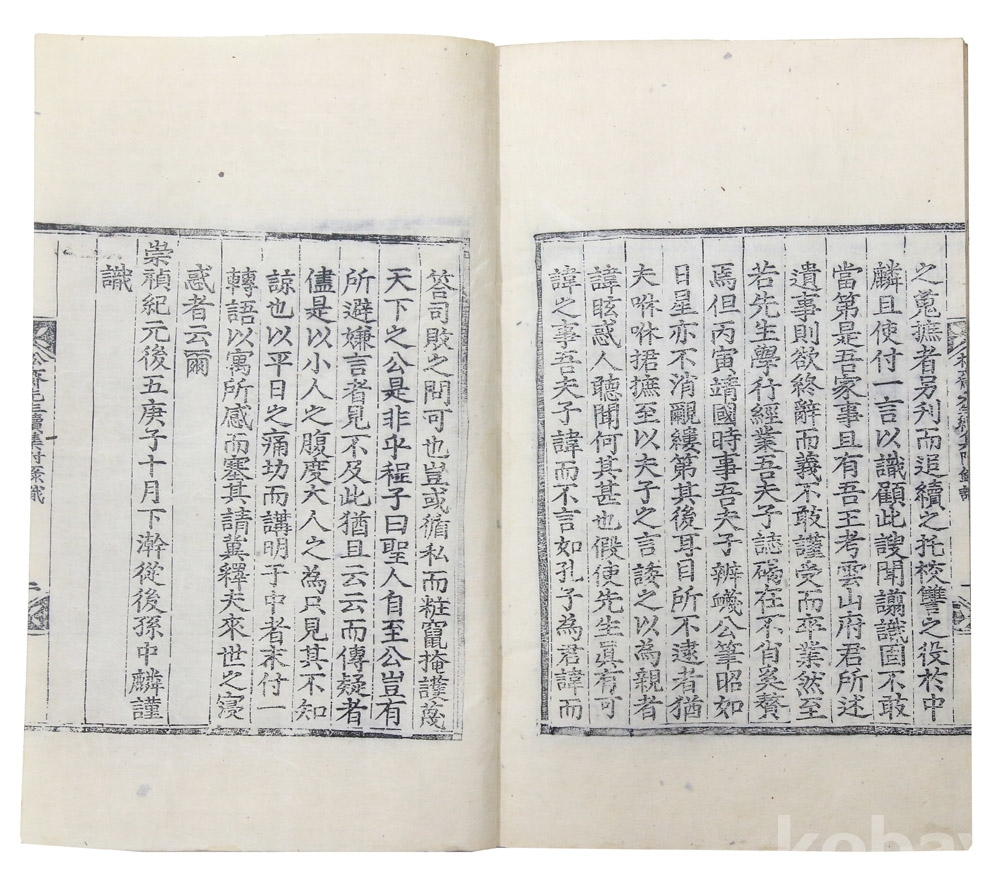 之蒐摭者另刋而追續之托挍讐之役於中
麟且使付一言以識顧此謏聞謭識固不敢
當第是吾家事且有吾王考雲山府君所述
遺事則欲終辭而義不敢謹受而卒業然至
若先生學行經業吾夫子誌碣在不肖奚贅
焉但丙寅靖國時事吾夫子辨巇公筆昭如
日星亦不消覼縷第其後耳目所不逮者猶
夫咻咻捃摭至以夫子之言諉之以為親者
諱眩惑人聽聞何其甚也假使先生眞有可
諱之事吾夫子諱而不言如孔子為君諱而
答司敗之問可也豈或循私而粧竄掩護蔑
天下之公是非乎程子曰聖人自至公豈有
所避嫌言者見不及此猶且云云而傳疑者
儘是以小人之腹度大人之為只見其不知
諒也以平日之痛切而講明于中者末付一
轉語以寓所感而塞其請冀釋夫來世之寖
惑者云爾
崇禎紀元後五庚子十月下澣從後孫中麟謹
識
齋先生實集付錄識
二
kobay